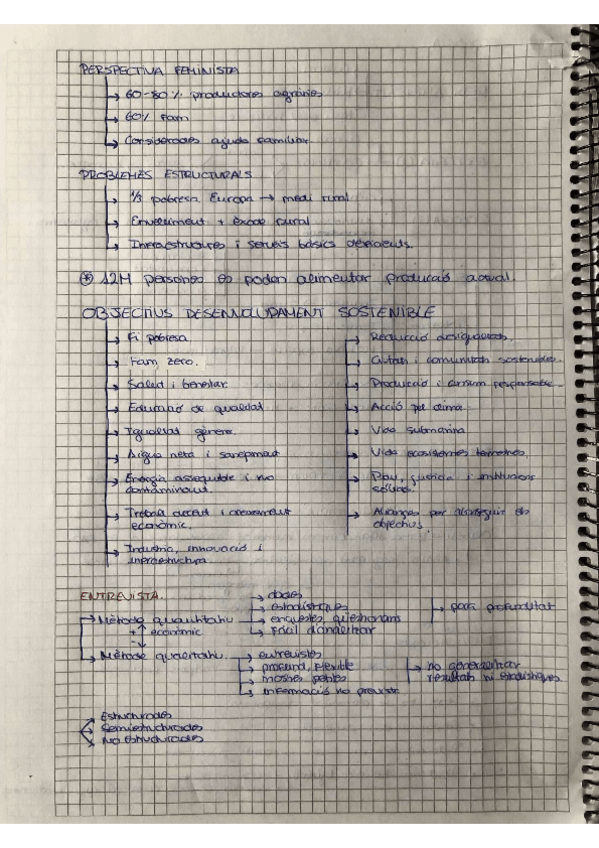 PERSPECTIVA FEMINISTA
→ 60-80% productores agràries
→ 60% fam
→ Considerades ajuda familiar.
PROBLEMES ESTRUCTURALS
→ 1/3 pobresa Europa → medi rural
→ Envelliment + èxode rural
→ Infraestructures i serveis bàsics deficients.
* 12M persones es poden alimentar producció actual.
OBJECTIUS DESENVOLUPAMENT SOSTENIBLE
→ Fi pobresa
→ Fam zero.
→ Salud i benestar
→ Educació de qualitat
→ Igualtat gènere.
→ Aigua neta i sanejament
→ Energia assequible i no
contaminant.
→ Treball decent i creixement
econòmic.
→ Indústria, innovació i
infraestructura.
→ Reducció desigualtats.
→ Ciutats i comunitats sostenibles.
→ Producció i consum responsable
→ Acció pel clima
→ Vida submarina
→ Vida ecosistemes terrestres.
→ Pau, justícia i institucions
sòlides.
→ Aliances per aconseguir els
objectius.
ENTREVISTA.
→ Mètode quantitatiu
+ ↑ econòmic
- ↓
→ dades
→ estadístiques
→ enquestes, qüestionaris
→ Fàcil d'analitzar
→ poca profunditat
→ Mètode qualitatiu.
→ entrevistes
→ profund, flexible
→ mostres petites
→ Informació no prevista
→ no generalitzar
resultats ni estadístiques
Estructurades
Semiestructurades
No estructurades